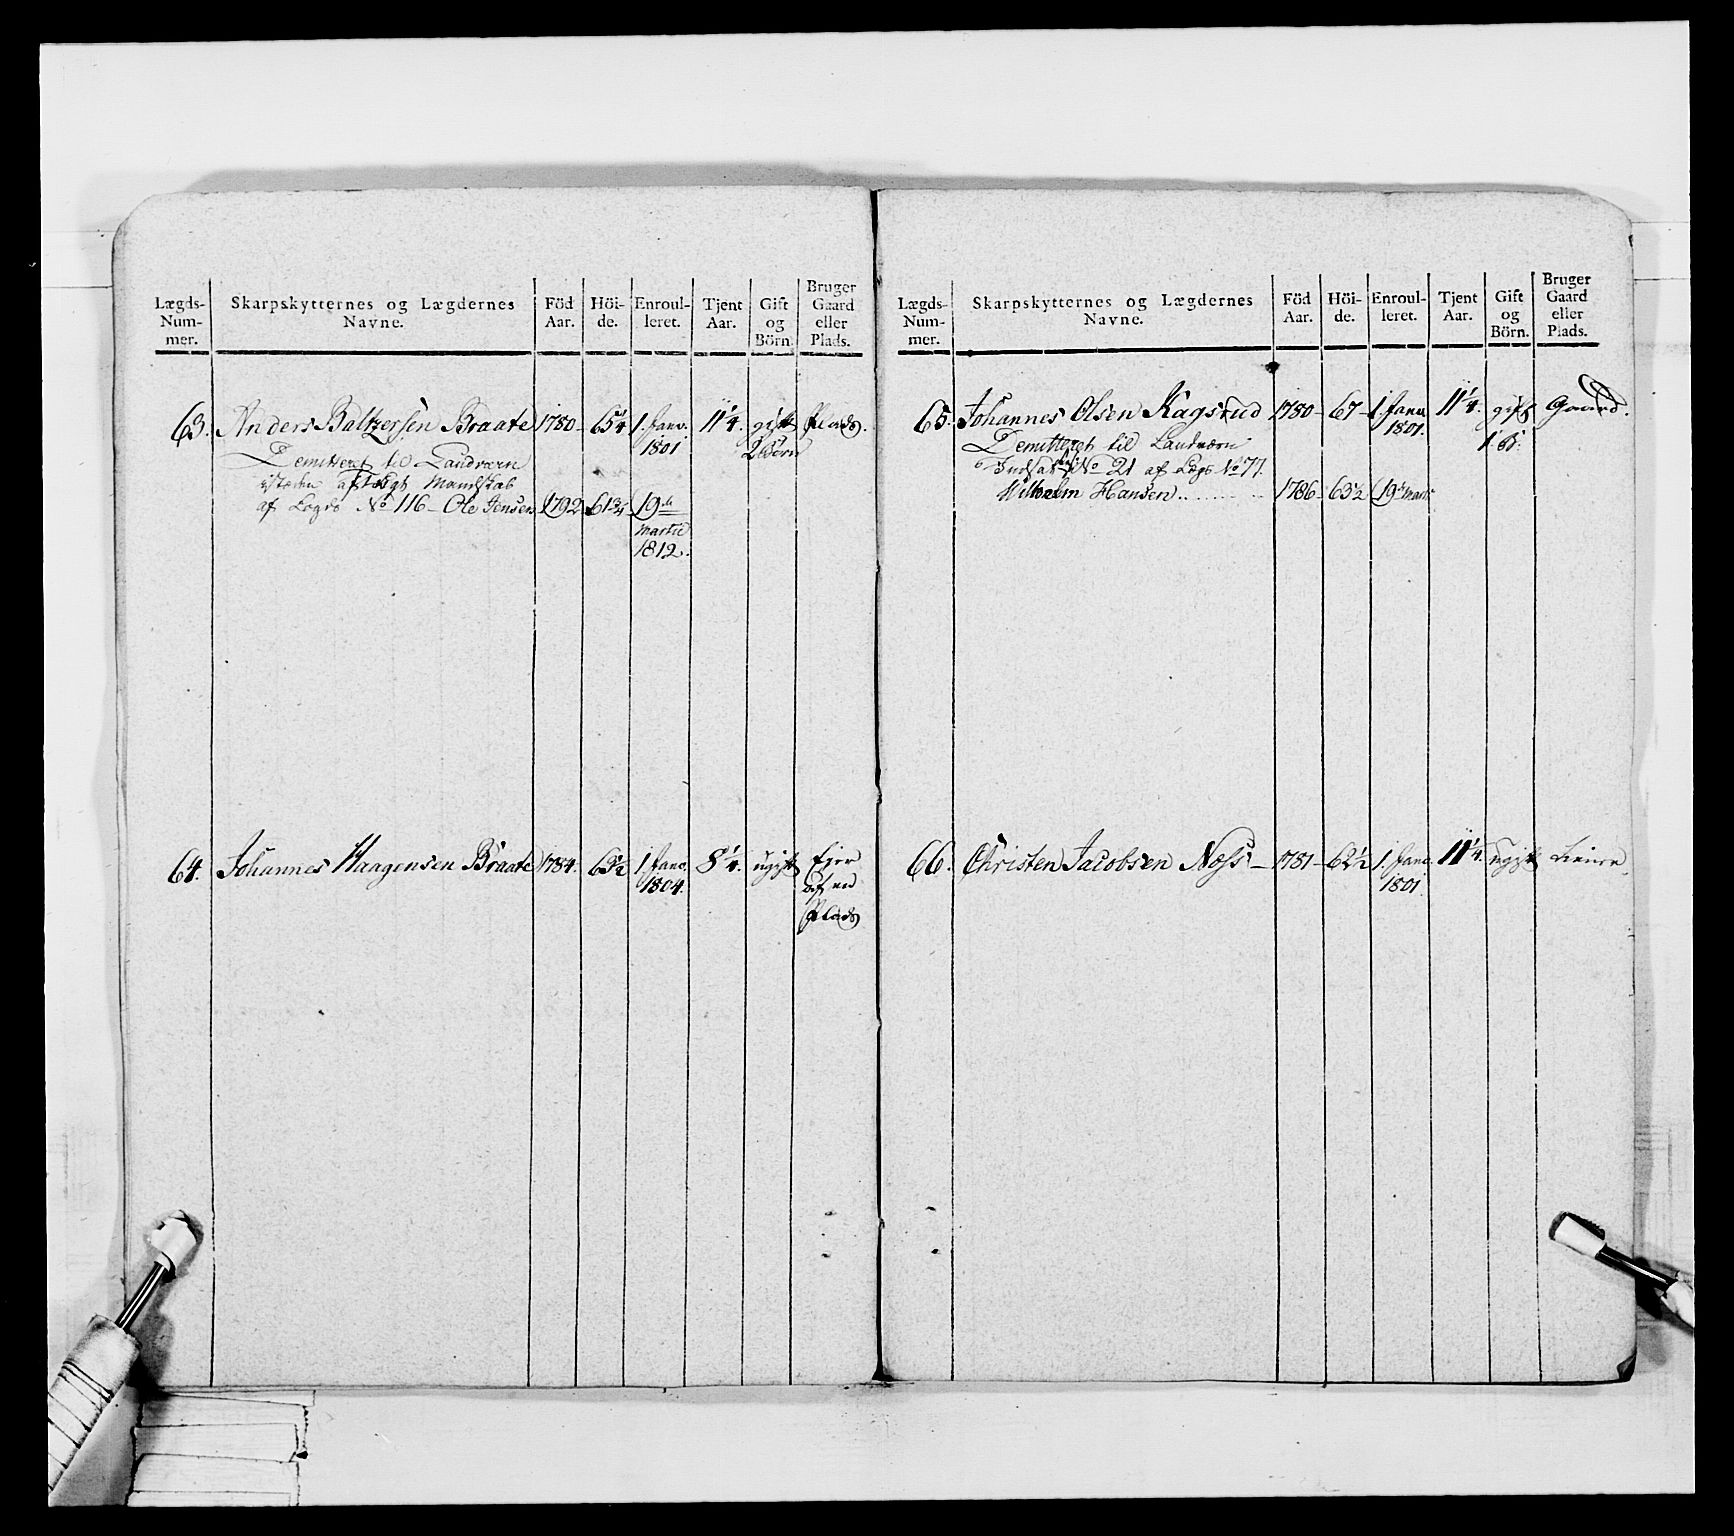 Lægds-Num-mer. Skarpskytternes og Lægdernes Navne. Föd Aar. Höi-de. Enroul-leret. Tjent Aar. Gift og Börn. Bruger Gaard eller Plads.
63. Anders Baltzersen Braate 1780 - 65¼ 1. Janv. 11¼. gift Plads.
1801 2 Börn
Demitteret til Landværn
af Lægd Mandskab
af Lægds No 116 - Ole Jensen 1792 61¾ 19de
Martii
1812.
64. Johannes Haagensen Braate 1784. 63½ 1. Janv. 8¼. ugift Ejer
1804. af en
Plads
Lægds-Num-mer. Skarpskytternes og Lægdernes Navne. Föd Aar. Höi-de. Enroul-leret. Tjent Aar. Gift og Börn. Bruger Gaard eller Plads.
65. Johannes Olsen Kagsrud 1780 - 67 - 1. Janv. 11¼. gift Gaard.
1801. 1 B.
Demitteret til Landværn
Indsat No 21 af Lægd No 77.
Wilhelm Hansen 1786 - 63½ 19de Martii
66. Christen Jacobsen Næss - 1781 - 62½ 1. Janv. 11¼. ugift
1801.